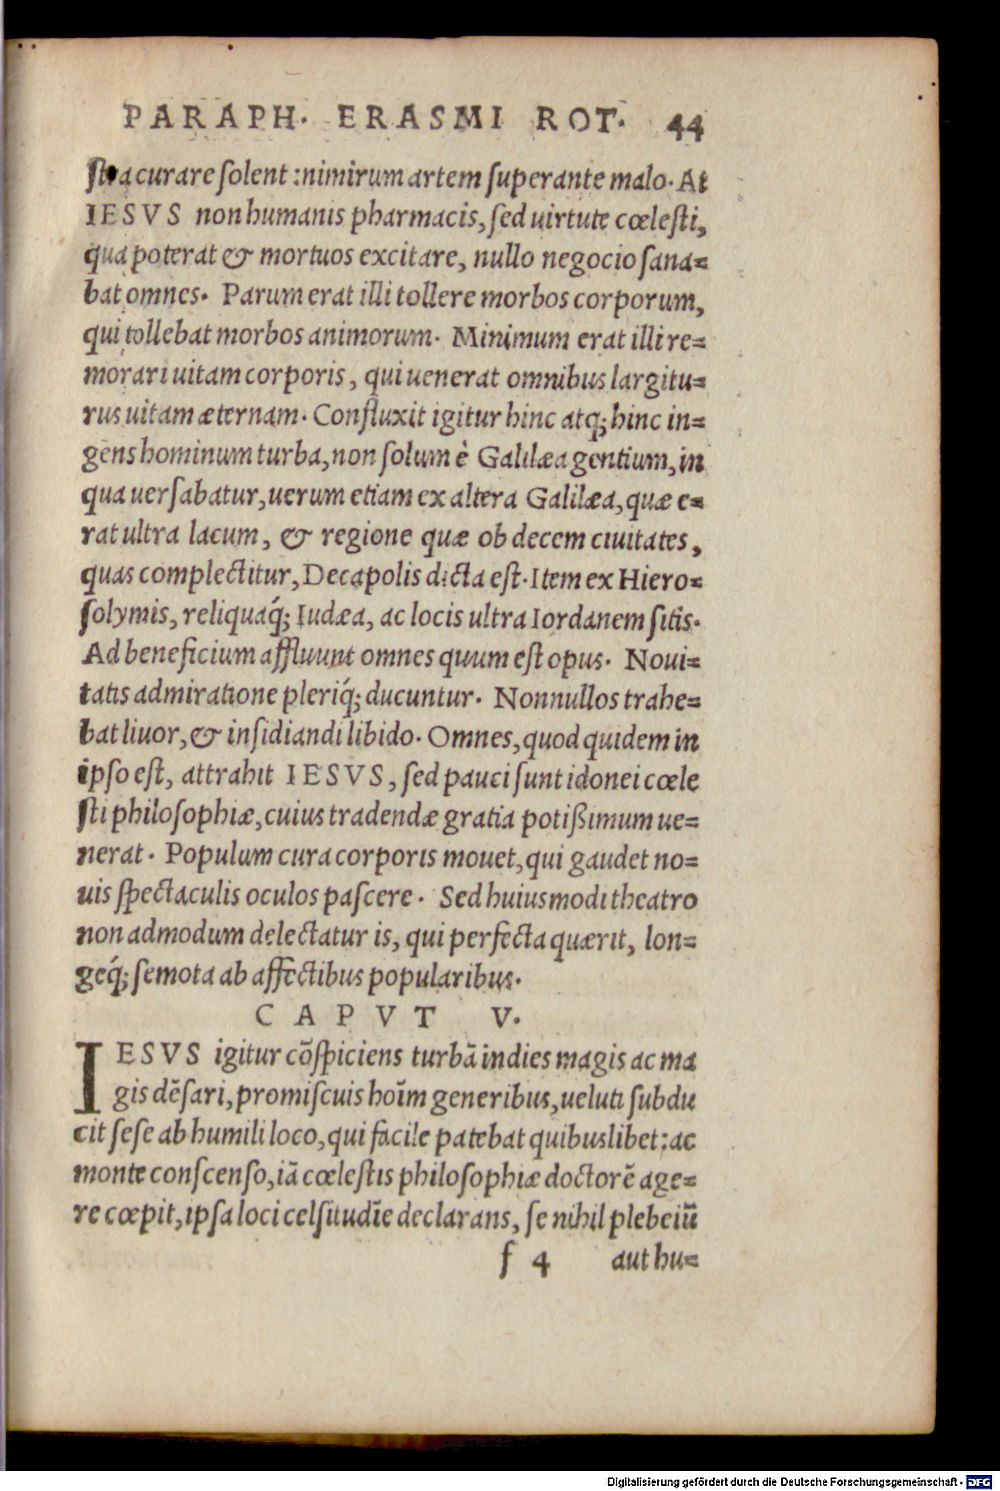 PARAPH. ERASMI ROT. 44
stra curare solent: nimirum artem superante malo. At
IESVS non humanis pharmacis, sed uirtute cœlesti,
qua poterat & mortuos excitare, nullo negocio sana=
bat omnes. Parum erat illi tollere morbos corporum,
qui tollebat morbos animorum. Minimum erat illi re=
morari uitam corporis, qui uenerat omnibus largitu=
rus uitam æternam. Confluxit igitur hinc atq; hinc in=
gens hominum turba, non solum è Galilæa gentium, in
qua uersabatur, uerum etiam ex altera Galilæa, quæ e=
rat ultra lacum, & regione quæ ob decem ciuitates,
quas complectitur, Decapolis dicta est. Item ex Hiero=
solymis, reliquaq́; Iudæa, ac locis ultra Iordanem sitis.
Ad beneficium affluunt omnes quum est opus. Noui=
tatis admiratione pleriq́; ducuntur. Nonnullos trahe=
bat liuor, & insidiandi libido. Omnes, quod quidem in
ipso est, attrahit IESVS, sed pauci sunt idonei cœle
sti philosophiæ, cuius tradendæ gratia potißimum ue=
nerat. Populum cura corporis mouet, qui gaudet no=
uis spectaculis oculos pascere. Sed huiusmodi theatro
non admodum delectatur is, qui perfecta quærit, lon=
geq́; semota ab affectibus popularibus.
CAPVT V.
IESVS igitur cõspiciens turbã indies magis ac ma
gis dẽsari, promiscuis hoĩm generibus, ueluti subdu
cit sese ab humili loco, qui facile patebat quibuslibet: ac
monte conscenso, iã cœlestis philosophiæ doctorẽ age=
re cœpit, ipsa loci celsitudĩe declarans, se nihil plebeiũ
f 4 aut hu=
Digitalisierung gefördert durch die Deutsche Forschungsgemeinschaft - DFG